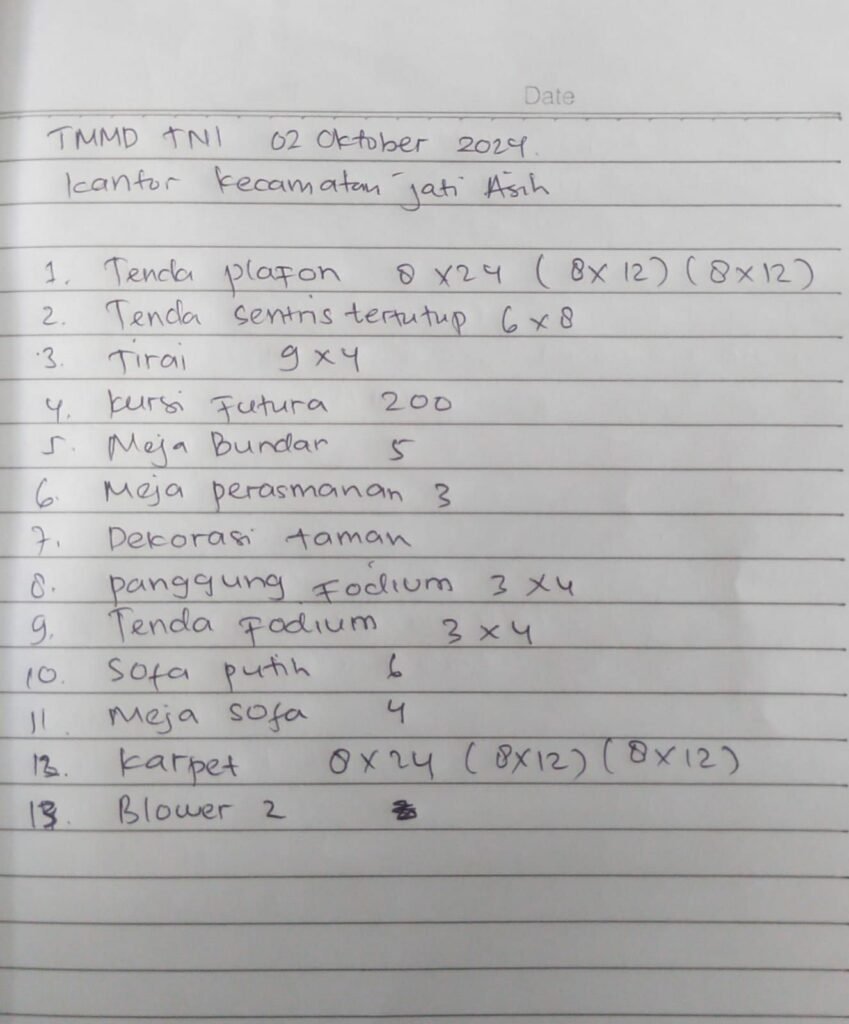 Date
TMMD TNI 02 Oktober 2024.
kantor kecamatan jati Asih
1. Tenda plafon 8 x 24 ( 8 x 12 ) ( 8 x 12 )
2. Tenda sentris tertutup 6 x 8
3. Tirai 9 x 4
4. kursi Futura 200
5. Meja Bundar 5
6. Meja perasmanan 3
7. Dekorasi taman
8. panggung Fodium 3 x 4
9. Tenda Fodium 3 x 4
10. Sofa putih 6
11. Meja sofa 4
12. karpet 8 x 24 ( 8 x 12 ) ( 8 x 12 )
13. Blower 2